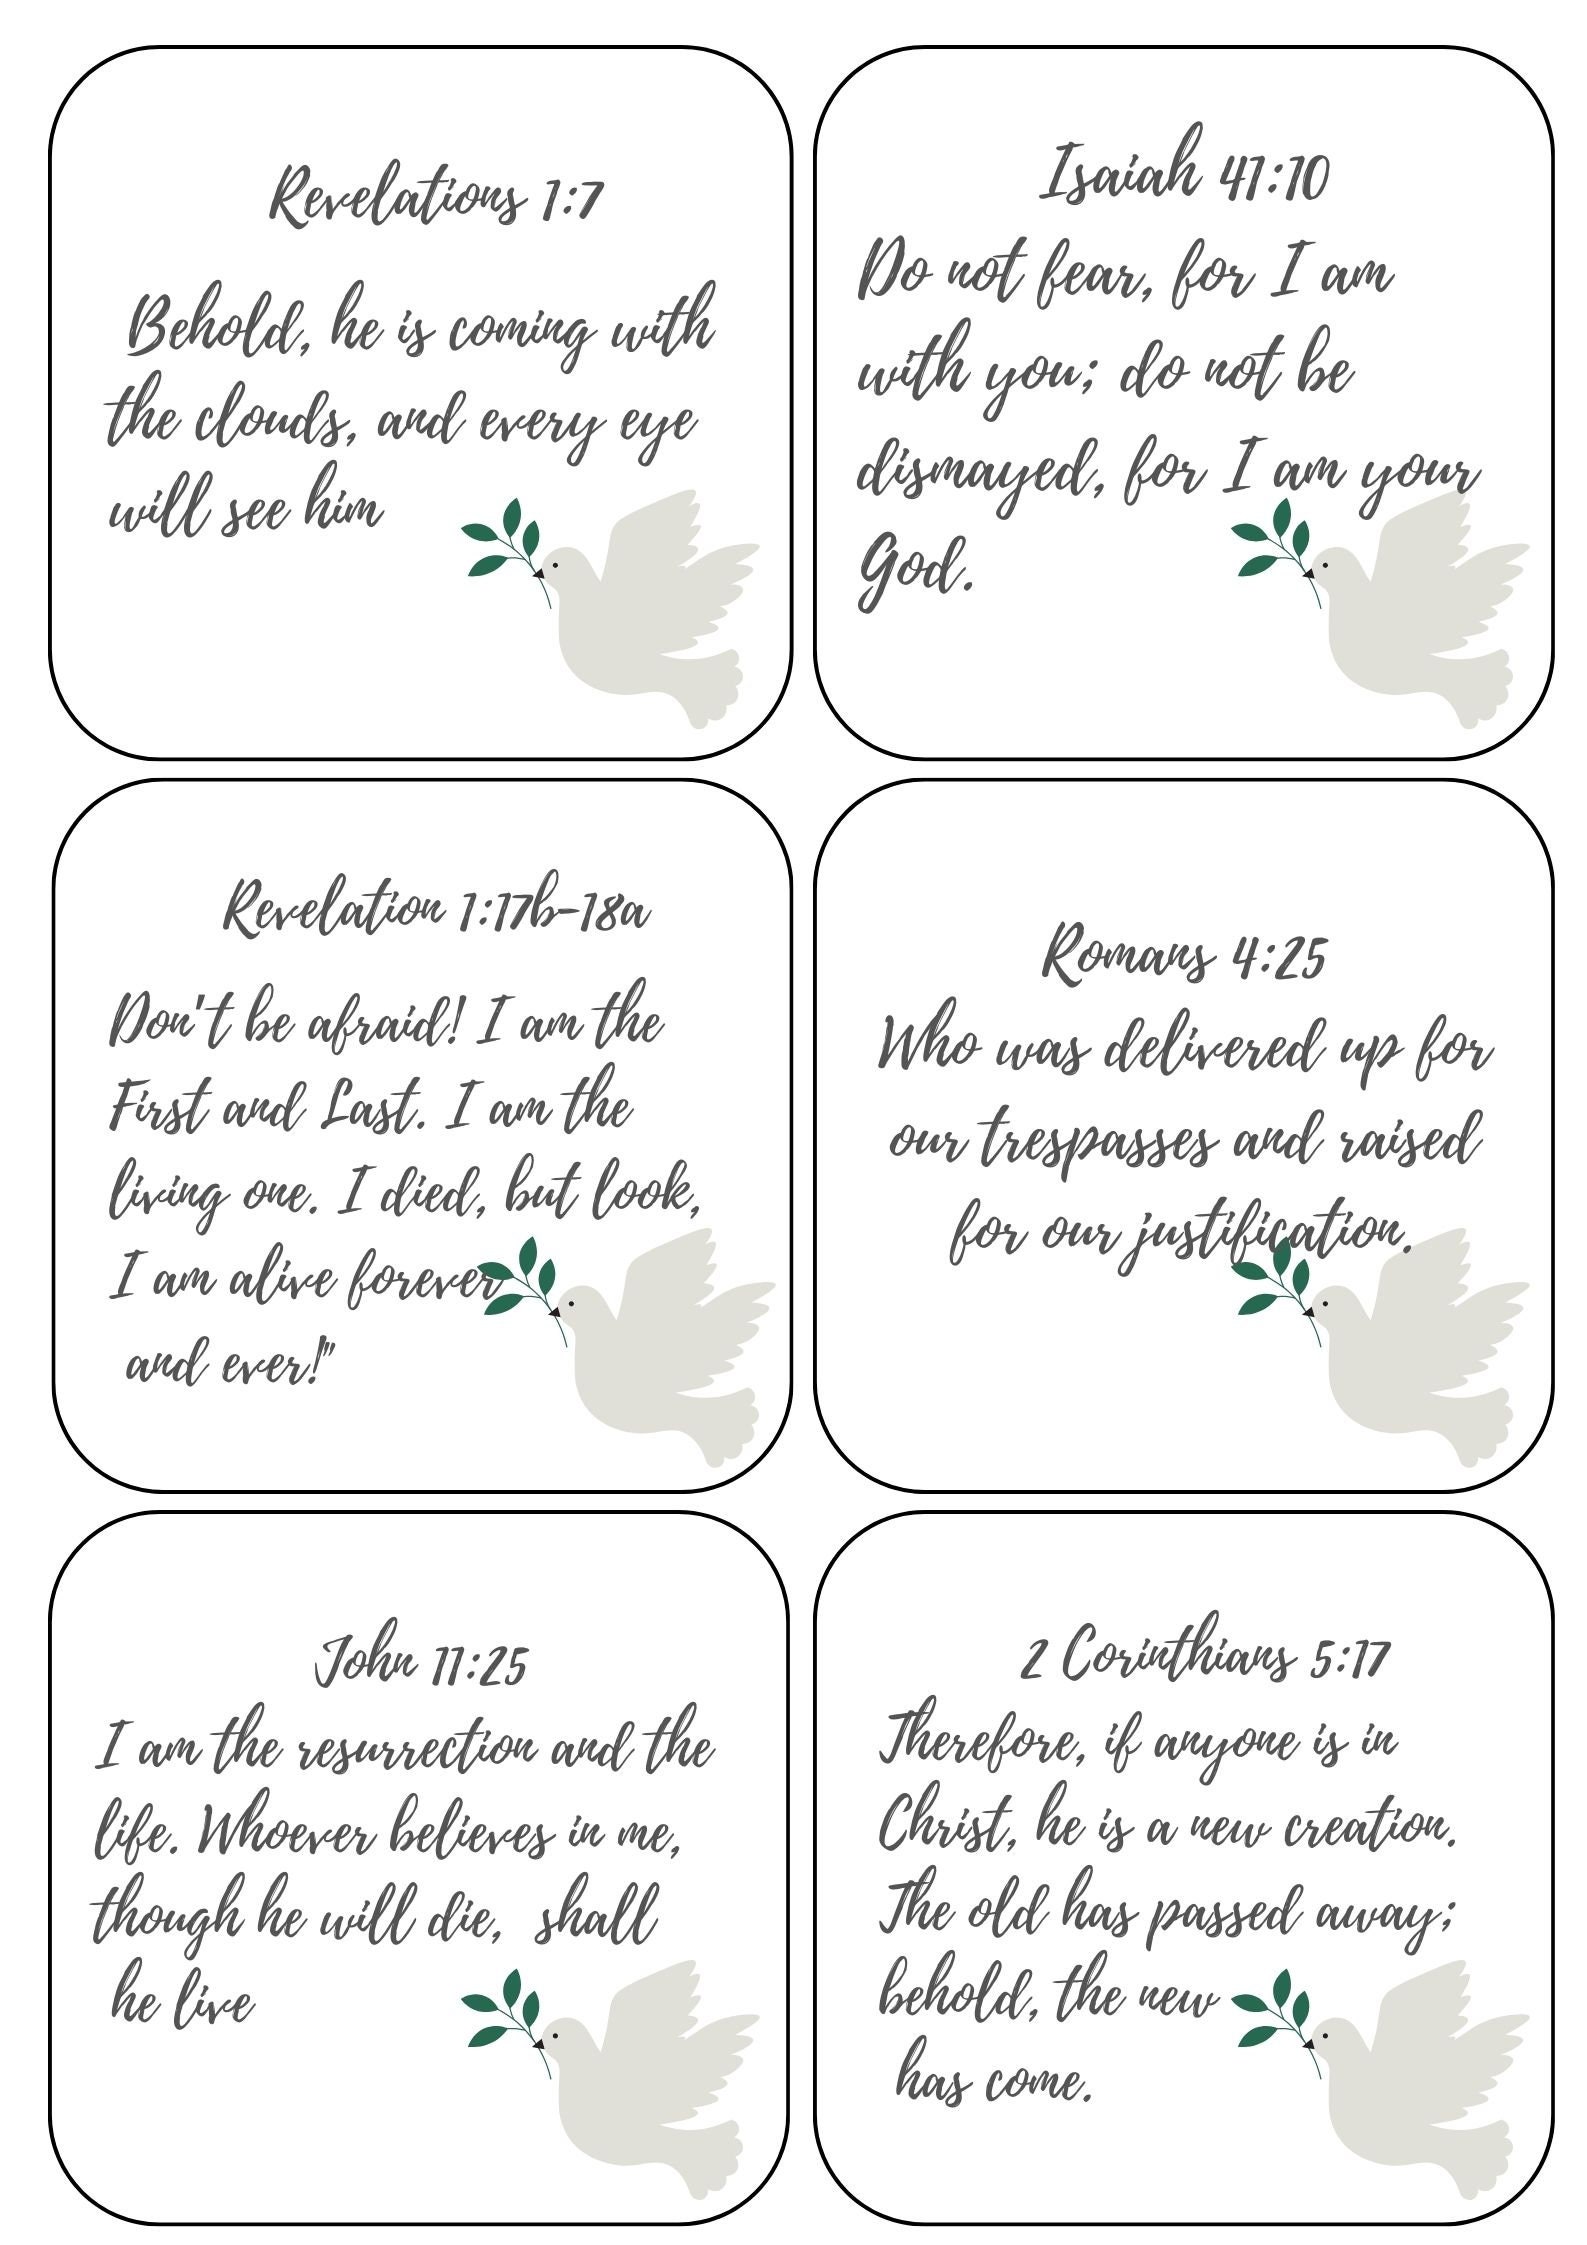 Revelations 1:7
Behold, he is coming with
the clouds, and every eye
will see him
Isaiah 41:10
Do not fear, for I am
with you; do not be
dismayed, for I am your
God.
Revelation 1:17b-18a
Don't be afraid! I am the
First and Last. I am the
living one. I died, but look,
I am alive forever
and ever!"
Romans 4:25
Who was delivered up for
our trespasses and raised
for our justification.
John 11:25
I am the resurrection and the
life. Whoever believes in me,
though he will die, shall
he live
2 Corinthians 5:17
Therefore, if anyone is in
Christ, he is a new creation.
The old has passed away;
behold, the new
has come.